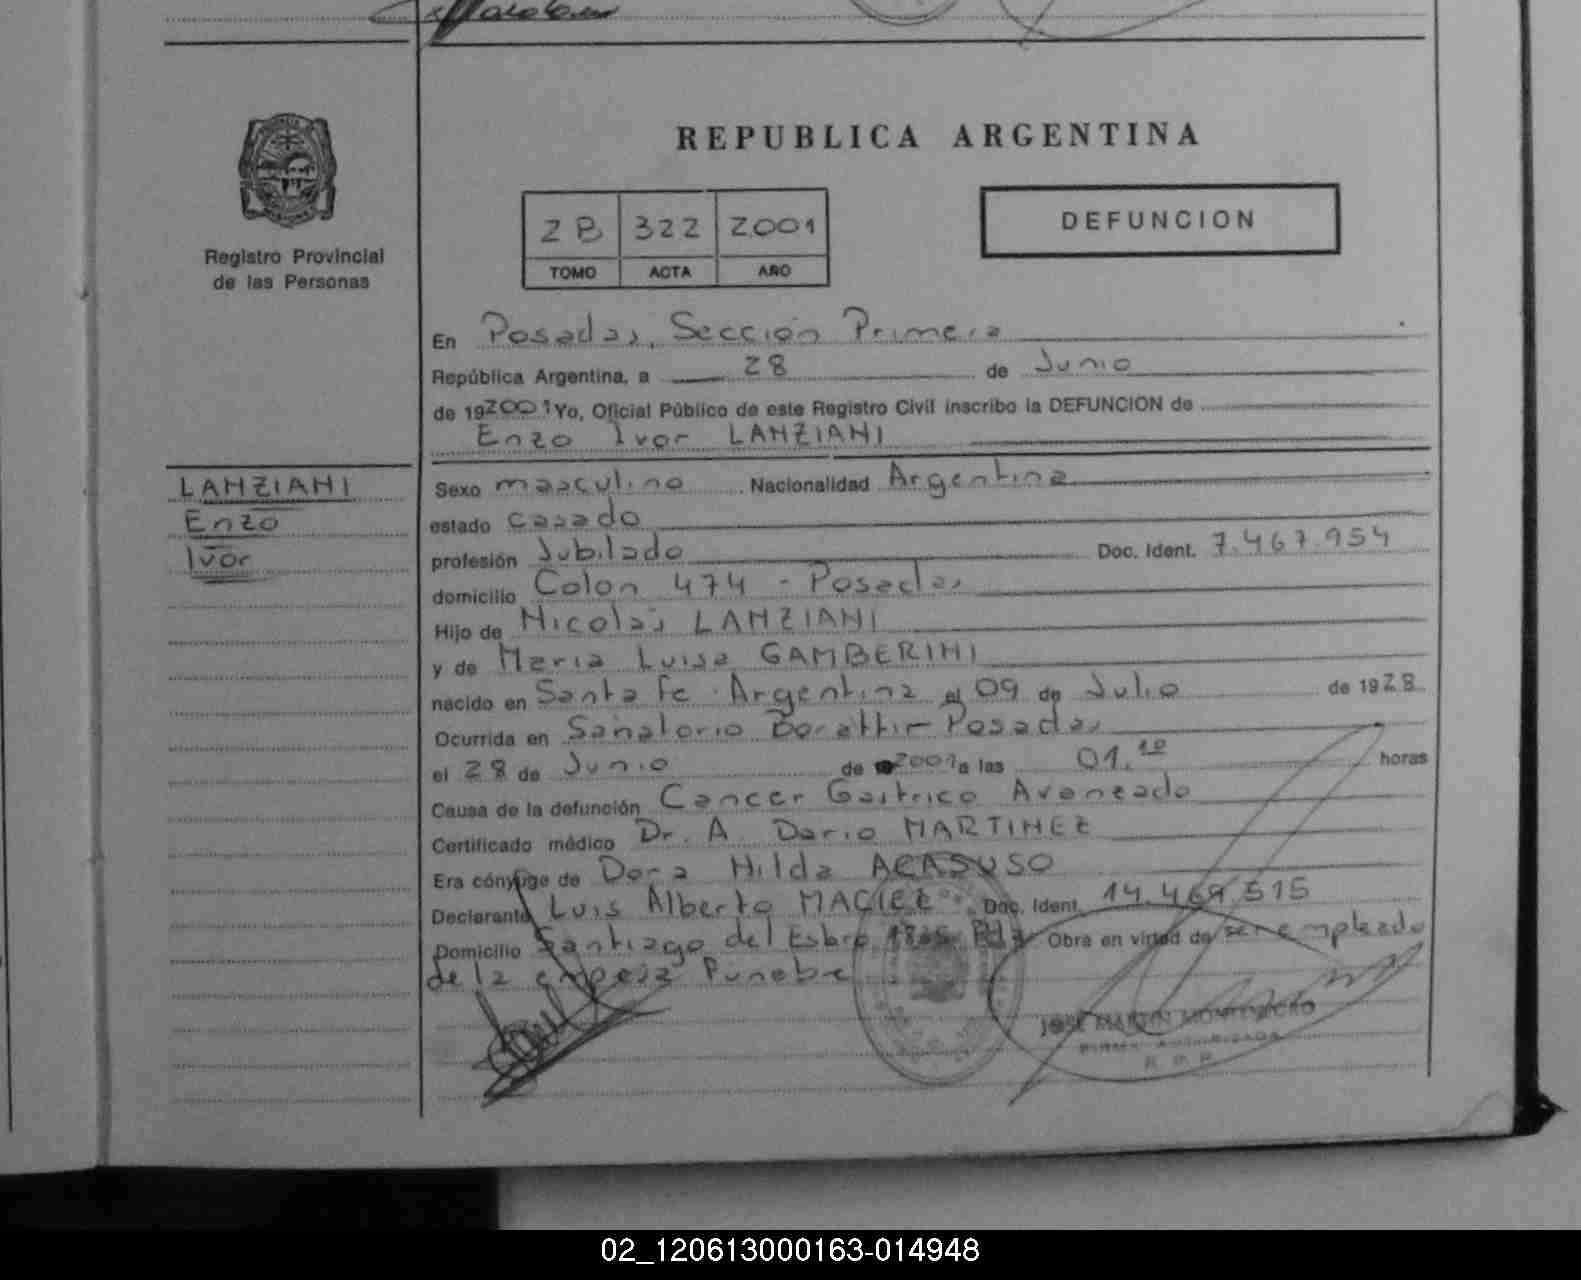 REPUBLICA ARGENTINA
Registro Provincial
de las Personas
2B 322 2001
TOMO ACTA AÑO
DEFUNCION
En Posadas, Sección Primera
República Argentina, a 28 de Junio
de 192001 Yo, Oficial Público de este Registro Civil inscribo la DEFUNCION de
Enzo Ivor LANZIANI
LANZIANI
Enzo
Ivor
Sexo masculino Nacionalidad Argentina
estado casado
profesión Jubilado Doc. Ident. 7.467.954
domicilio Colon 474 - Posadas
Hijo de Nicolás LANZIANI
y de Maria Luisa GAMBERINI
nacido en Santa Fe - Argentina el 09 de Julio de 1928
Ocurrida en Sanatorio Boratti - Posadas
el 28 de Junio de 2001 a las 01.10 horas
Causa de la defunción Cancer Gastrico Avanzado
Certificado médico Dr. A. Dario MARTINEZ
Era cónyuge de Dora Hilda ACASUSO
Declarante Luis Alberto MACIEL Doc. Ident. 14.469.515
Domicilio Santiago del Estero Pdas Obra en virtud de ser empleado
de la empresa Funebre
JOSE MARTIN MONTENEGRO
FIRMA AUTORIZADA
R. P. P.
02_120613000163-014948